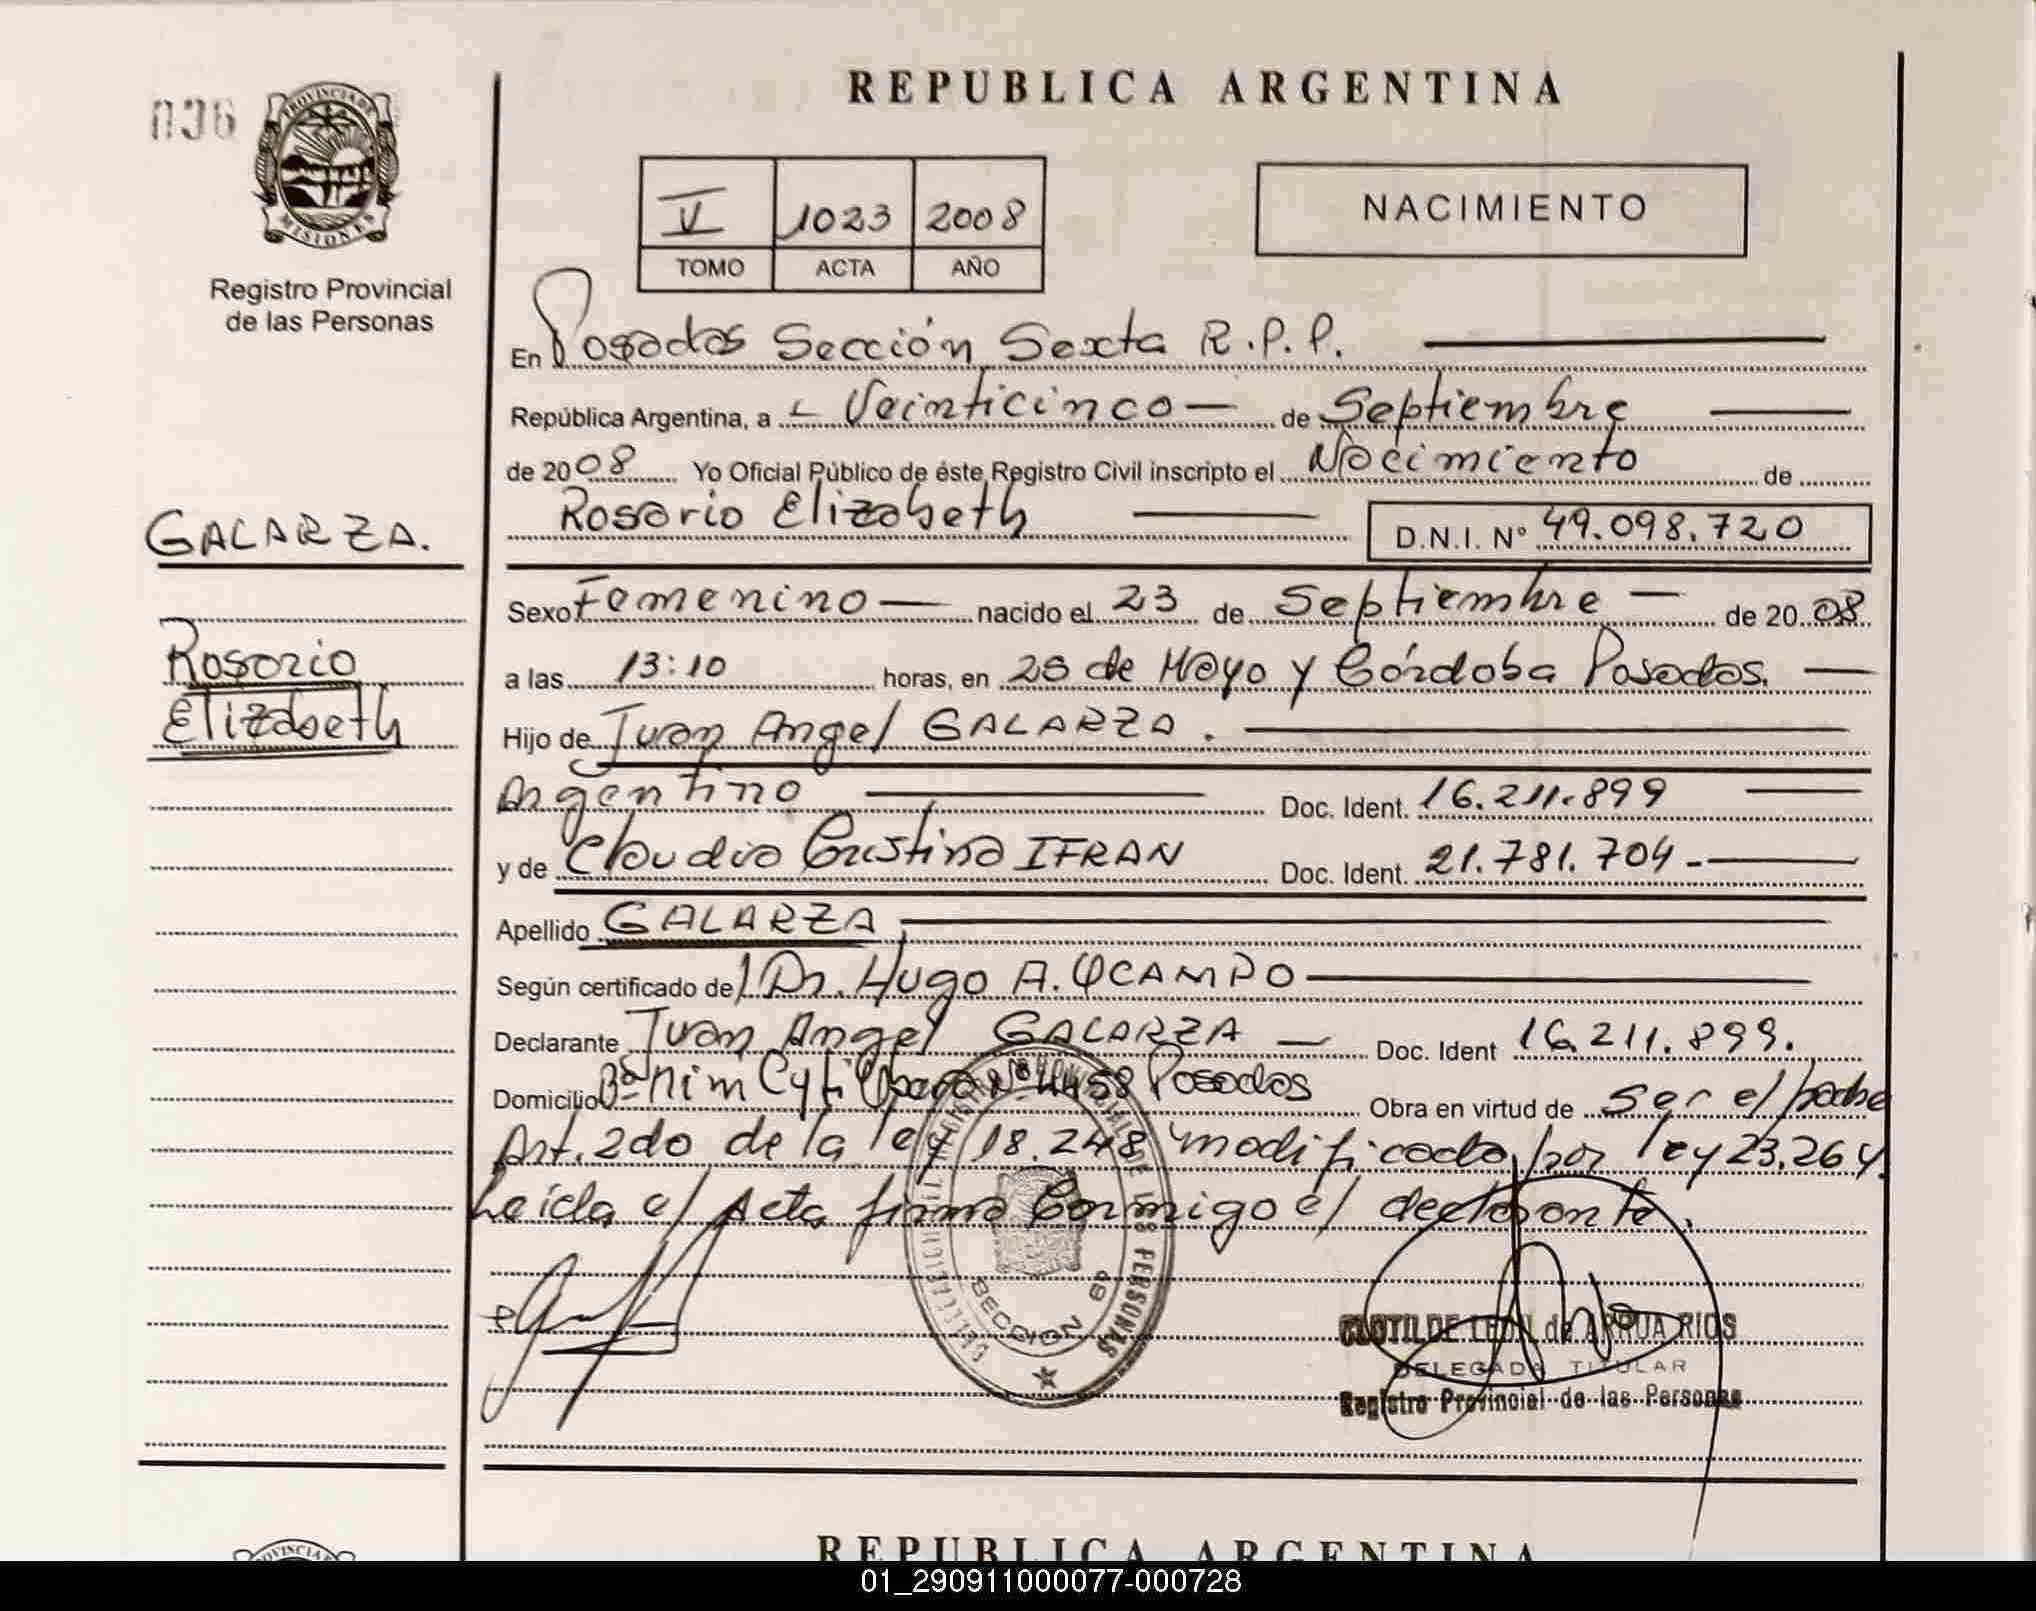 036
PROVINCIA DE
MISIONES
Registro Provincial
de las Personas
GALARZA.
Rosario
Elizabeth
REPUBLICA ARGENTINA
V 1023 2008
TOMO ACTA AÑO
NACIMIENTO
En Posadas Sección Sexta R.P.P.
República Argentina, a Veinticinco de Septiembre
de 2008 Yo Oficial Público de éste Registro Civil inscripto el Nacimiento de
Rosario Elizabeth D.N.I. Nº 49.098.720
Sexo Femenino nacido el 23 de Septiembre de 2008
a las 13:10 horas, en 25 de Mayo y Córdoba Posadas.
Hijo de Juan Angel GALARZA.
Argentino Doc. Ident. 16.211.899
y de Claudia Cristina IFRAN Doc. Ident. 21.781.704
Apellido GALARZA
Según certificado de Dr. Hugo A. OCAMPO
Declarante Juan Angel GALARZA Doc. Ident 16.211.899.
Domicilio Bº Nº 4458 Posadas Obra en virtud de ser el padre
Art. 2do de la ley 18.248 modificado por ley 23.264.
Leída el Acta firma Conmigo el declarante.
PROVINCIAL DE LAS PERSONAS
SECCION 6ª
CLOTILDE LEON de ARRUA RIOS
DELEGADA TITULAR
Registro Provincial de las Personas
PROVINCIA
REPUBLICA ARGENTINA
01_290911000077-000728